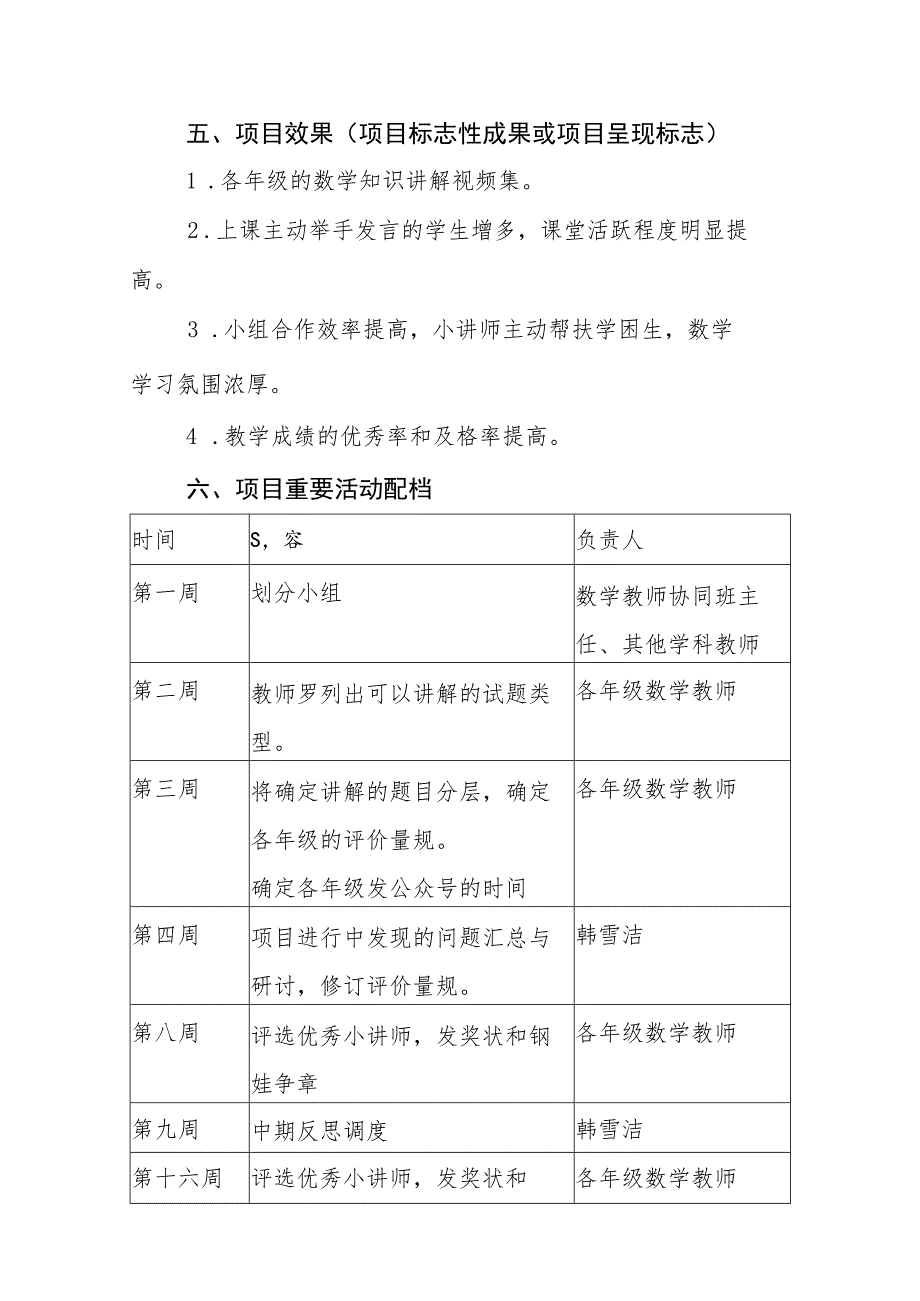 五、项目效果（项目标志性成果或项目呈现标志）
1 .各年级的数学知识讲解视频集。
2.上课主动举手发言的学生增多，课堂活跃程度明显提
高。
3 .小组合作效率提高，小讲师主动帮扶学困生，数学
学习氛围浓厚。
4 .教学成绩的优秀率和及格率提高。
六、项目重要活动配档
时间 S，容 负责人
第一周 划分小组 数学教师协同班主
任、其他学科教师
第二周 教师罗列出可以讲解的试题类 各年级数学教师
型。
第三周 将确定讲解的题目分层，确定 各年级数学教师
各年级的评价量规。
确定各年级发公众号的时间
第四周 项目进行中发现的问题汇总与 韩雪洁
研讨，修订评价量规。
第八周 评选优秀小讲师，发奖状和钢 各年级数学教师
娃争章
第九周 中期反思调度 韩雪洁
第十六周 评选优秀小讲师，发奖状和 各年级数学教师